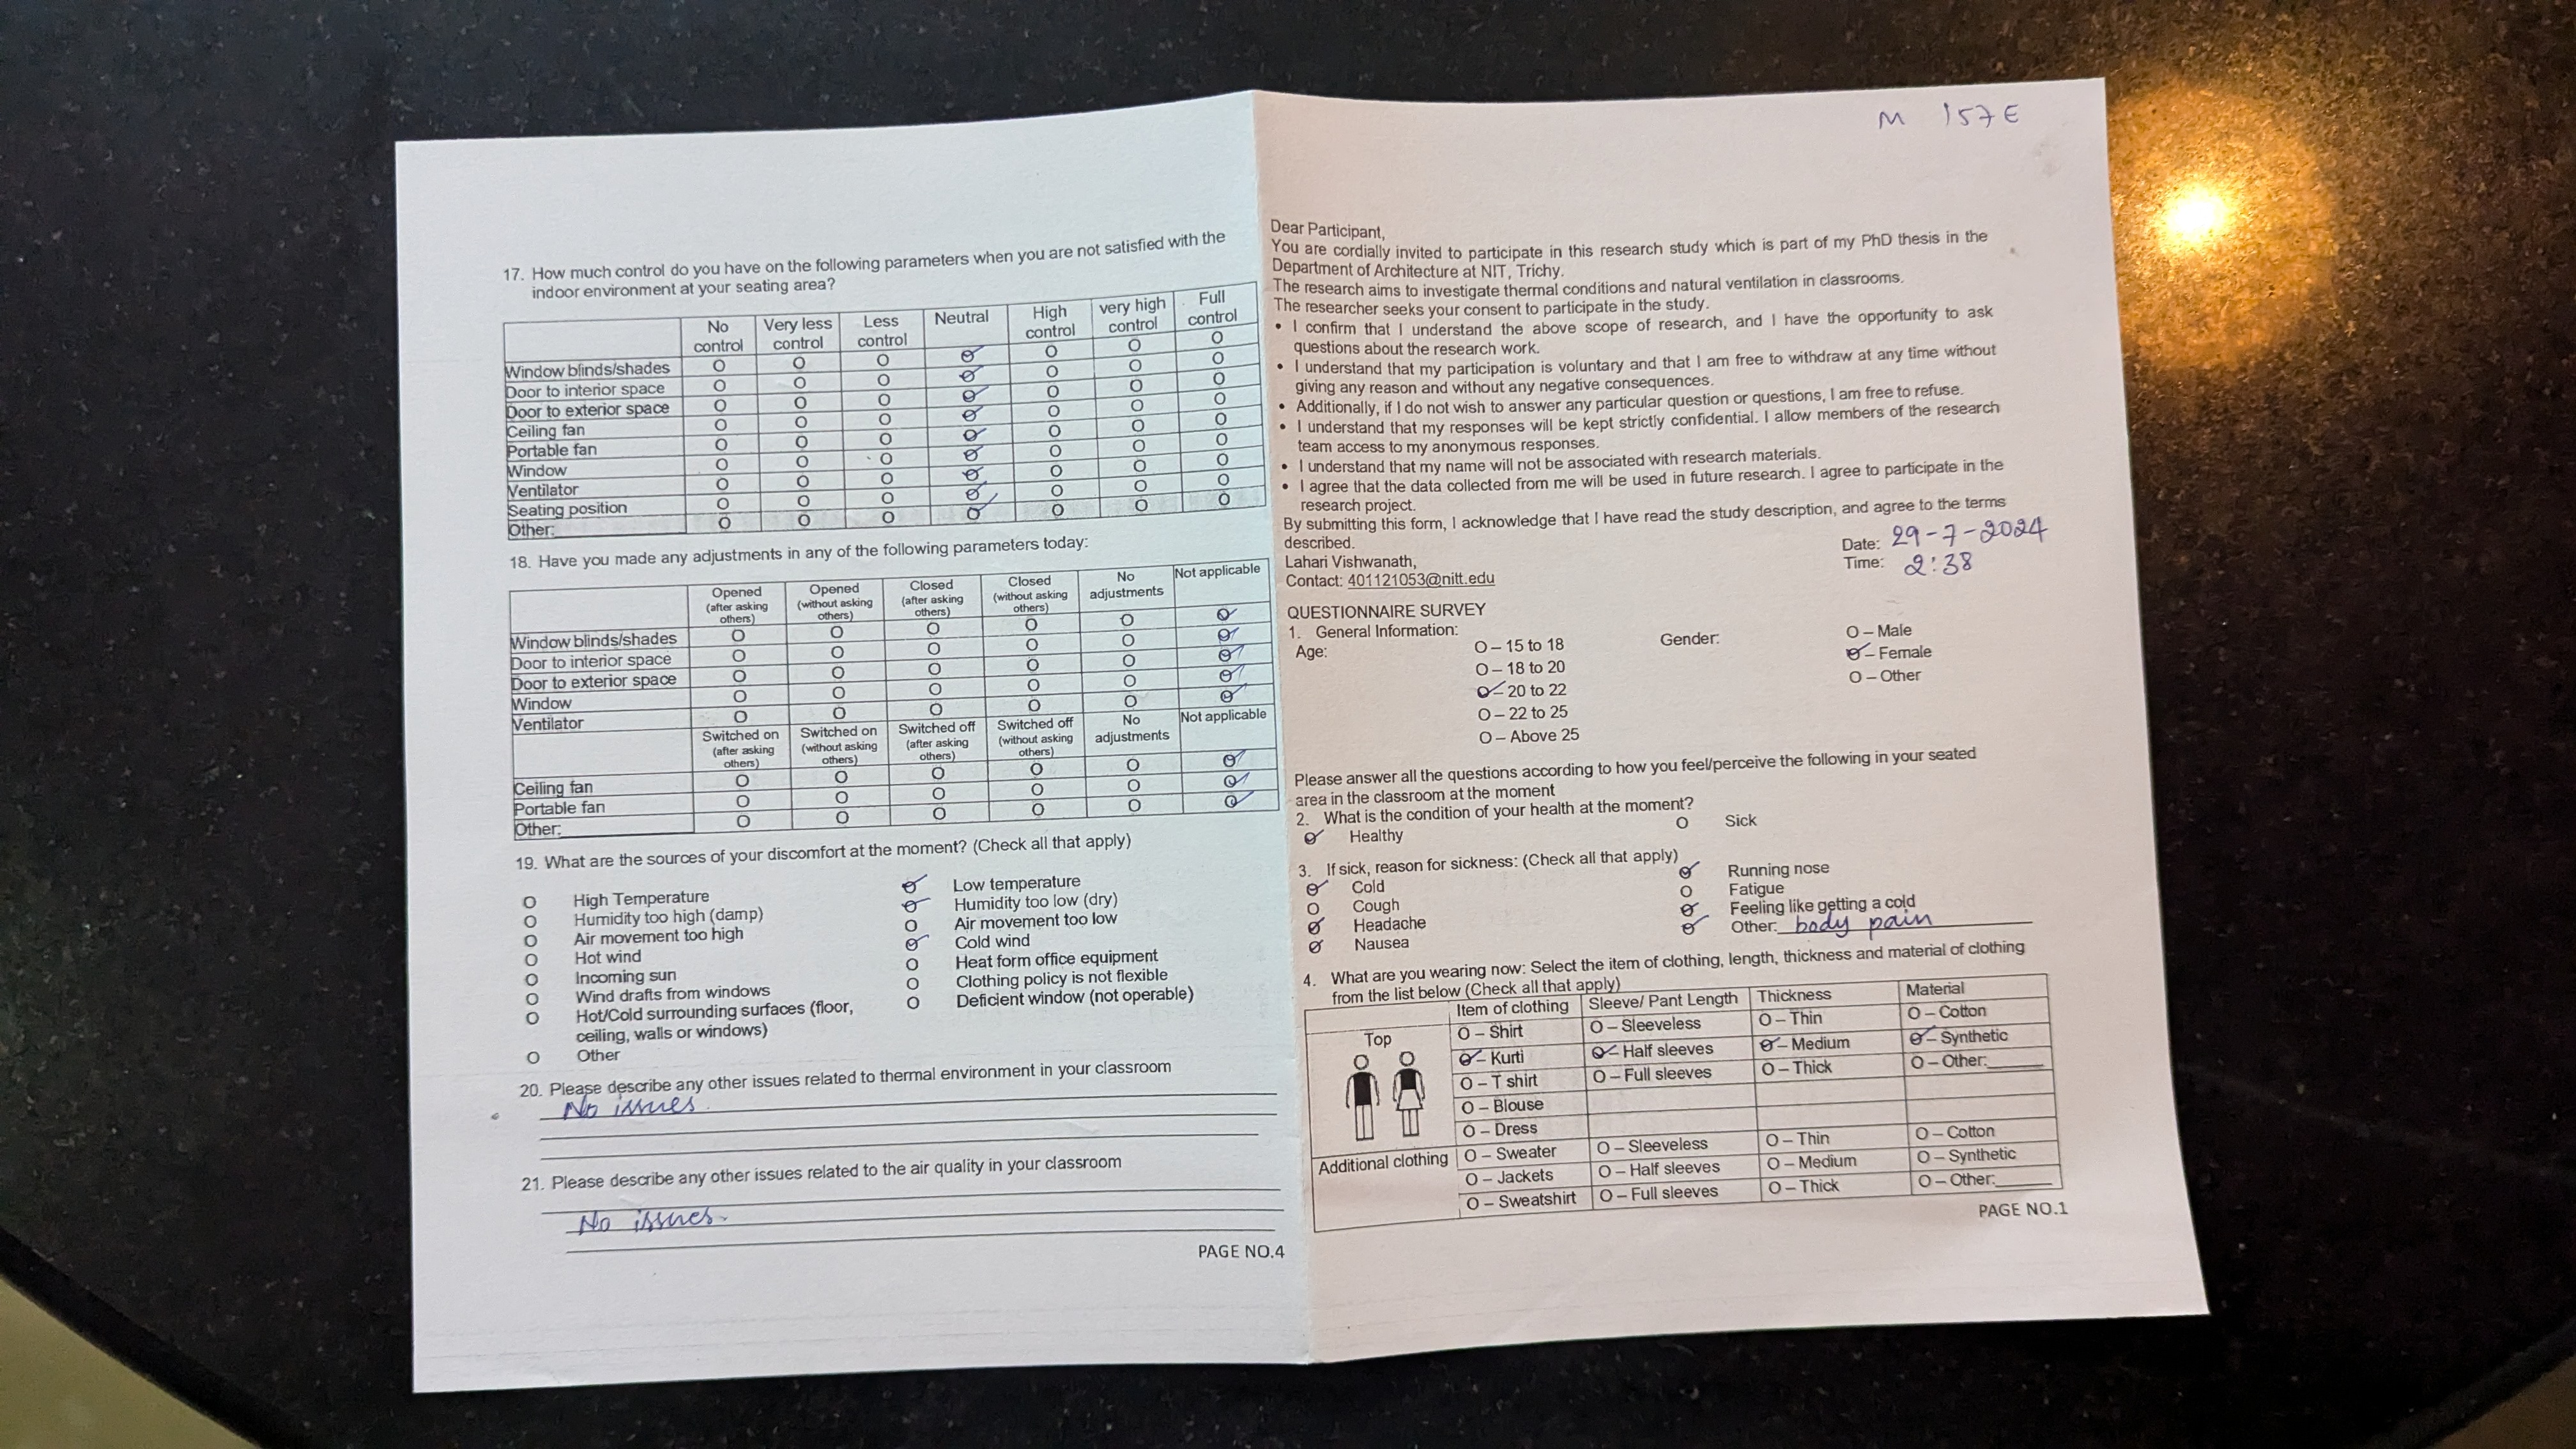 17. How much control do you have on the following parameters when you are not satisfied with the
indoor environment at your seating area?
No control Very less control Less control Neutral High control very high control Full control
Window blinds/shades O O O O O O O
Door to interior space O O O O O O O
Door to exterior space O O O O O O O
Ceiling fan O O O O O O O
Portable fan O O O O O O O
Window O O O O O O O
Ventilator O O O O O O O
Seating position O O O O O O O
Other: O O O O O O O
18. Have you made any adjustments in any of the following parameters today:
Opened (after asking others) Opened (without asking others) Closed (after asking others) Closed (without asking others) No adjustments Not applicable
Window blinds/shades O O O O O O
Door to interior space O O O O O O
Door to exterior space O O O O O O
Window O O O O O O
Ventilator O O O O O O
Switched on (after asking others) Switched on (without asking others) Switched off (after asking others) Switched off (without asking others) No adjustments Not applicable
Ceiling fan O O O O O O
Portable fan O O O O O O
Other: O O O O O O
19. What are the sources of your discomfort at the moment? (Check all that apply)
O High Temperature O Low temperature
O Humidity too high (damp) O Humidity too low (dry)
O Air movement too high O Air movement too low
O Hot wind O Cold wind
O Incoming sun O Heat form office equipment
O Wind drafts from windows O Clothing policy is not flexible
O Hot/Cold surrounding surfaces (floor, O Deficient window (not operable)
ceiling, walls or windows)
O Other
20. Please describe any other issues related to thermal environment in your classroom
No issues.
21. Please describe any other issues related to the air quality in your classroom
No issues.
PAGE NO.4
M 157E
Dear Participant,
You are cordially invited to participate in this research study which is part of my PhD thesis in the
Department of Architecture at NIT, Trichy.
The research aims to investigate thermal conditions and natural ventilation in classrooms.
The researcher seeks your consent to participate in the study.
• I confirm that I understand the above scope of research, and I have the opportunity to ask
questions about the research work.
• I understand that my participation is voluntary and that I am free to withdraw at any time without
giving any reason and without any negative consequences.
• Additionally, if I do not wish to answer any particular question or questions, I am free to refuse.
• I understand that my responses will be kept strictly confidential. I allow members of the research
team access to my anonymous responses.
• I understand that my name will not be associated with research materials.
• I agree that the data collected from me will be used in future research. I agree to participate in the
research project.
By submitting this form, I acknowledge that I have read the study description, and agree to the terms
described.
Date: 29-7-2024
Lahari Vishwanath,
Time: 2:38
Contact: 401121053@nitt.edu
QUESTIONNAIRE SURVEY
1. General Information:
Age: O – 15 to 18 Gender: O – Male
O – 18 to 20 O – Female
O – 20 to 22 O – Other
O – 22 to 25
O – Above 25
Please answer all the questions according to how you feel/perceive the following in your seated
area in the classroom at the moment
2. What is the condition of your health at the moment?
O Healthy O Sick
3. If sick, reason for sickness: (Check all that apply)
O Cold O Running nose
O Cough O Fatigue
O Headache O Feeling like getting a cold
O Nausea O Other: body pain
4. What are you wearing now: Select the item of clothing, length, thickness and material of clothing
from the list below (Check all that apply)
Item of clothing Sleeve/ Pant Length Thickness Material
Top O – Shirt O – Sleeveless O – Thin O – Cotton
O – Kurti O – Half sleeves O – Medium O – Synthetic
O – T shirt O – Full sleeves O – Thick O – Other:
O – Blouse
O – Dress
Additional clothing O – Sweater O – Sleeveless O – Thin O – Cotton
O – Jackets O – Half sleeves O – Medium O – Synthetic
O – Sweatshirt O – Full sleeves O – Thick O – Other:
PAGE NO.1